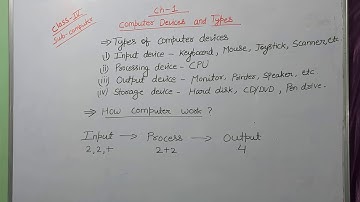 Class-IV
Sub-computer
Ch-1
Computer Devices and Types
⇒ Types of computer devices
(i) Input device - Keyboard, Mouse, Joystick, Scanner, etc
(ii) Processing device - CPU
(iii) Output device - Monitor, Printer, Speaker, etc
(iv) Storage device - Hard disk, CD/DVD, Pen drive.
⇒ How Computer work?
Input → Process → Output
2,2,+ 2+2 4